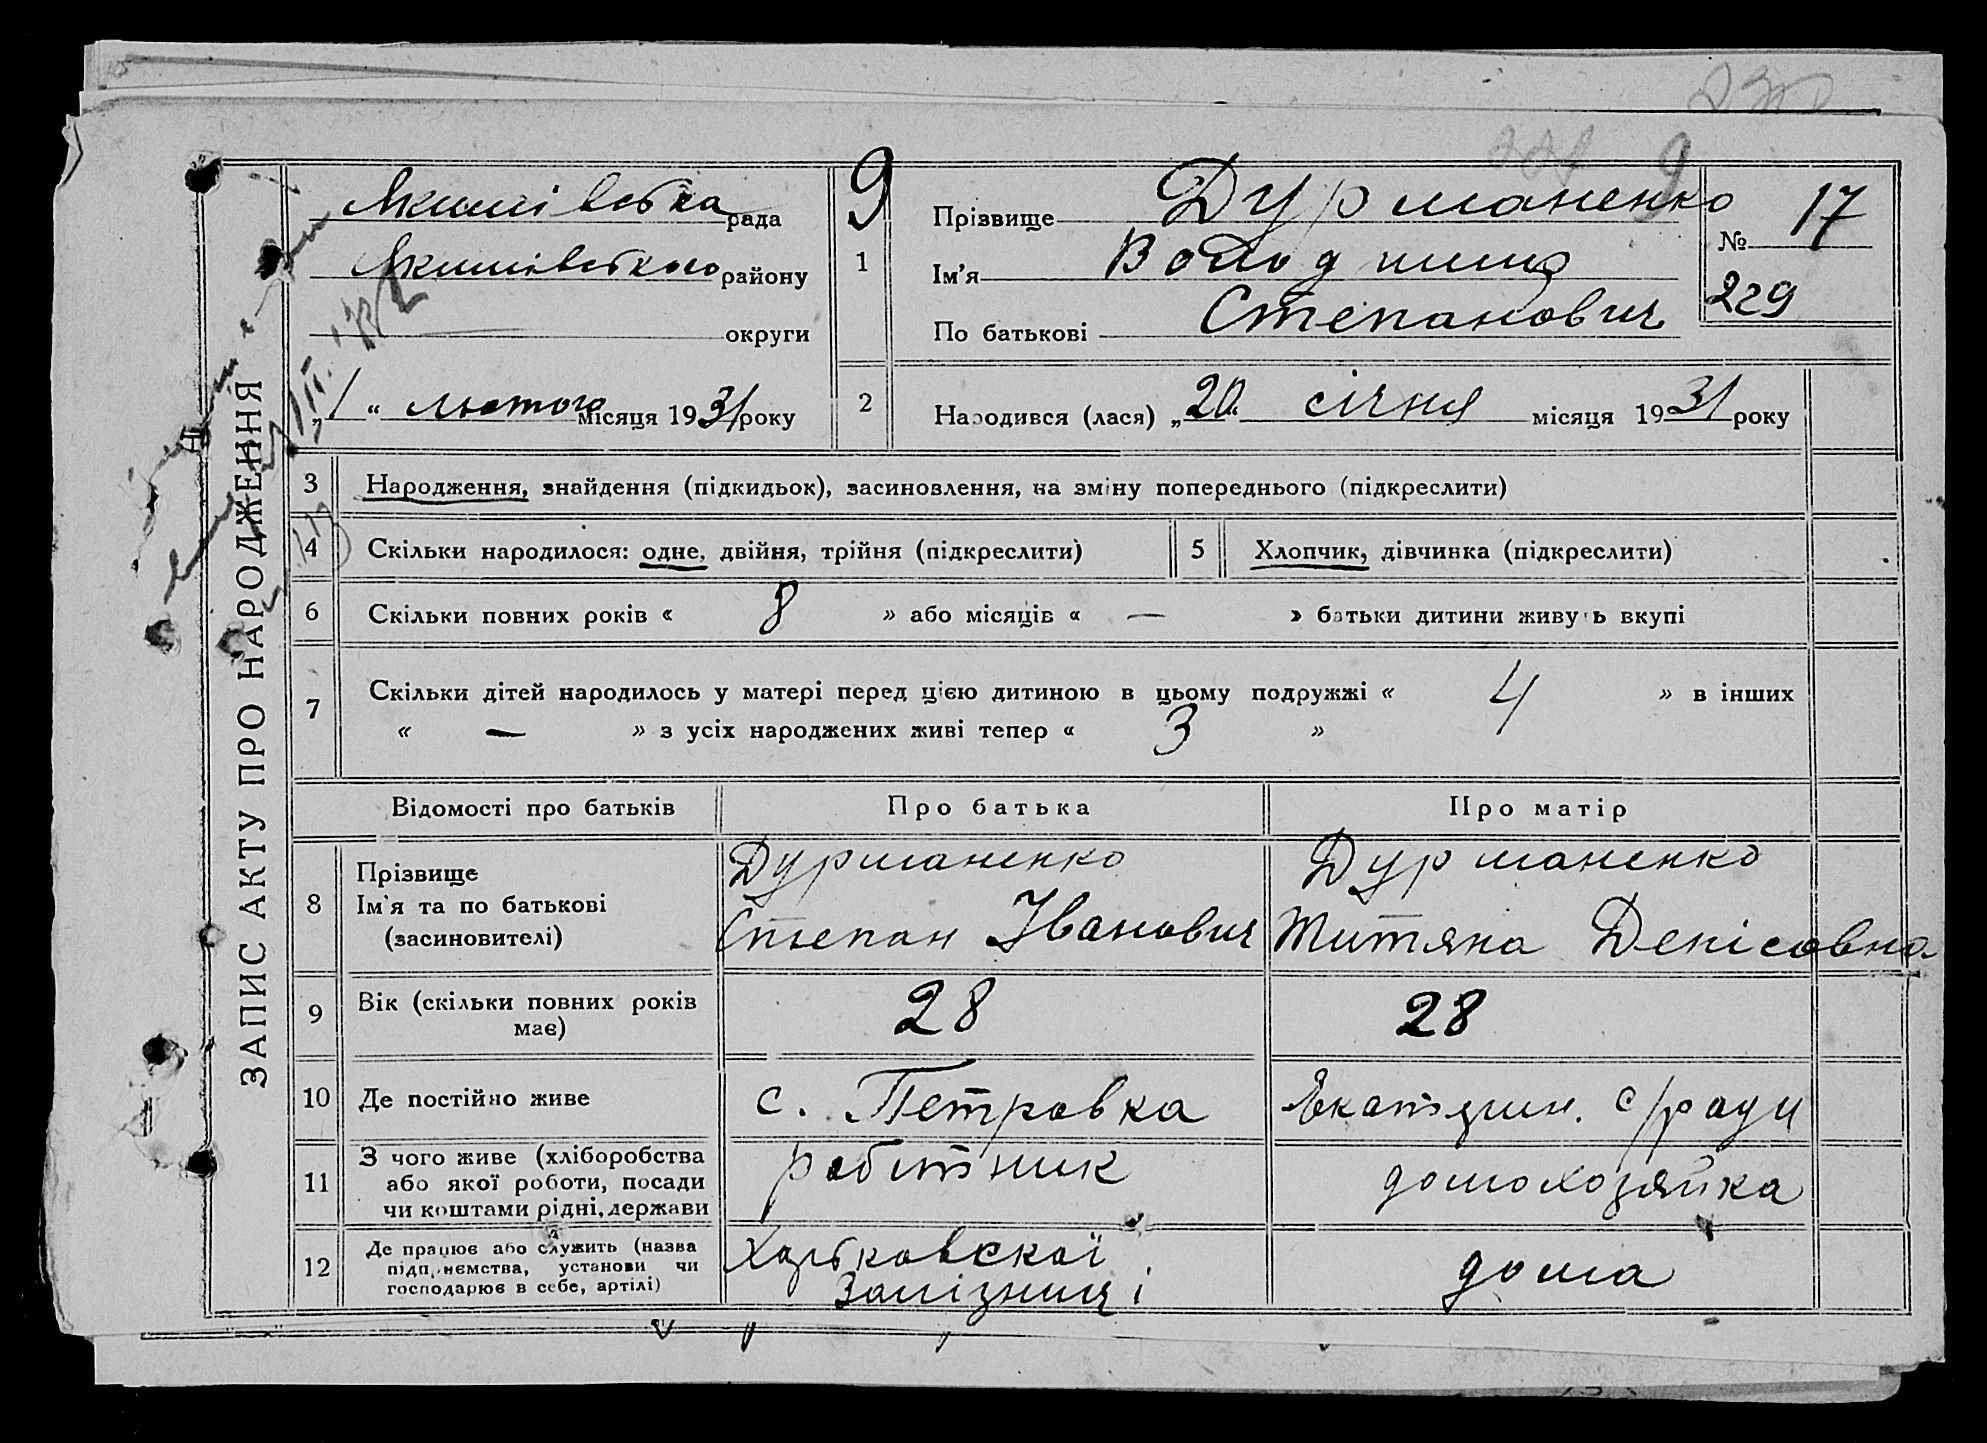 ЗАПИС АКТУ ПРО НАРОДЖЕННЯ
Якимівська рада
Якимівського району
округи
„1“ лютого місяця 1931 року
9
1
Прізвище Дурманенко
Ім’я Володимир
По батькові Степанович
№ 17
229
2
Народився (лася) „20“ січня місяця 1931 року
3 Народження, знайдення (підкидьок), засиновлення, на зміну попереднього (підкреслити)
4 Скільки народилося: одне, двійня, трійня (підкреслити)
5 Хлопчик, дівчинка (підкреслити)
6 Скільки повних років « 8 » або місяців « — » батьки дитини живуть вкупі
7 Скільки дітей народилось у матері перед цією дитиною в цьому подружжі « 4 » в інших
« — » з усіх народжених живі тепер « 3 »
Відомості про батьків Про батька Про матір
8 Прізвище
Ім’я та по батькові
(засиновителі)
Дурманенко
Степан Іванович
Дурманенко
Титяна Денісовна
9 Вік (скільки повних років
має)
28 28
10 Де постійно живе с. Петровка Екатерин. с/ради
11 З чого живе (хліборобства
або якої роботи, посади
чи коштами рідні, держави
робітник домохозяйка
12 Де працює або служить (назва
підприємства, установи чи
господарює в себе, артілі)
Харьковскої
Залізниці
дома